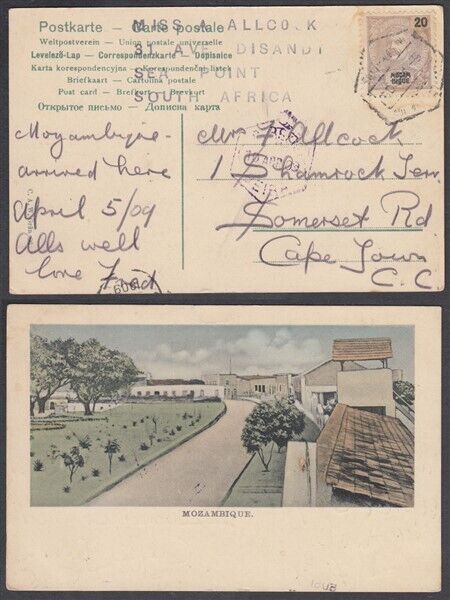 Postkarte – Carte postale
Weltpostverein – Union postale universelle
Levelező-Lap – Correspondenzkarte – Dopisnice
Karta korespondencyjna – Korespondenční lístek
Briefkaart – Cartolina postale
Post card – Brefkort – Brevkort
Открытое письмо – Дописна карта
MISS A ALLCOCK
31 AVE DISANDT
SEA POINT
SOUTH AFRICA
20
MOÇAM
BIQUE
Mozambique –
arrived here
April 5/09
Alls well
love Fred
Mrs F Allcock
1 Shamrock Terr.
Somerset Rd
Cape Town
C.C.
BEIRA
1909
MOZAMBIQUE.